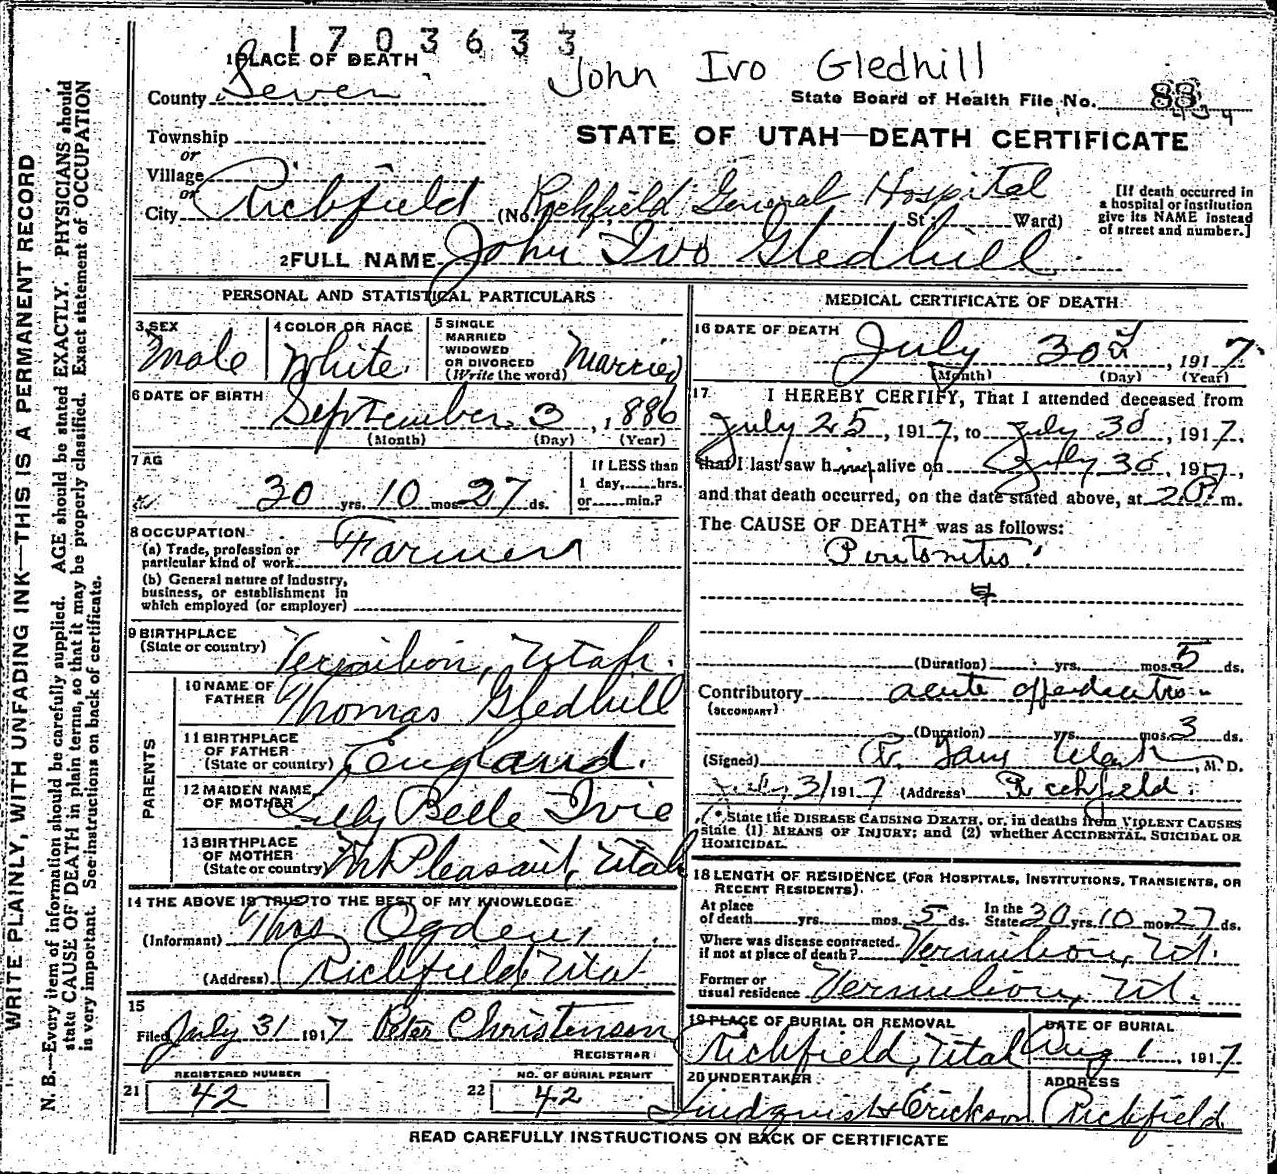 1703633
John Ivo Gledhill
1 PLACE OF DEATH
County Sevier
State Board of Health File No. 88
Township
or
Village
or
City Richfield
STATE OF UTAH—DEATH CERTIFICATE
(No. Richfield General Hospital St; Ward)
[If death occurred in
a hospital or institution
give its NAME instead
of street and number.]
2 FULL NAME John Ivo Gledhill
PERSONAL AND STATISTICAL PARTICULARS
3 SEX
Male
4 COLOR OR RACE
White
5 SINGLE
MARRIED
WIDOWED
OR DIVORCED
(Write the word) Married
6 DATE OF BIRTH
September 3, 1886
(Month) (Day) (Year)
7 AG
30 yrs. 10 mos. 27 ds.
If LESS than
1 day, hrs.
or min.?
8 OCCUPATION
(a) Trade, profession or
particular kind of work Farmer
(b) General nature of industry,
business, or establishment in
which employed (or employer)
9 BIRTHPLACE
(State or country) Vermilion, Utah.
PARENTS
10 NAME OF
FATHER Thomas Gledhill
11 BIRTHPLACE
OF FATHER
(State or country) England.
12 MAIDEN NAME
OF MOTHER Lilly Belle Ivie
13 BIRTHPLACE
OF MOTHER
(State or country) Mt Pleasant, Utah
14 THE ABOVE IS TRUE TO THE BEST OF MY KNOWLEDGE
(Informant) Mrs Ogden,
(Address) Richfield, Utah
15
Filed July 31 1917 Peter Christensen
REGISTRAR
REGISTERED NUMBER
21 42
NO. OF BURIAL PERMIT
22 42
MEDICAL CERTIFICATE OF DEATH
16 DATE OF DEATH
July 30th, 1917
(Month) (Day) (Year)
17 I HEREBY CERTIFY, That I attended deceased from
July 25, 1917, to July 30, 1917,
that I last saw him alive on July 30, 1917,
and that death occurred, on the date stated above, at 2 P. m.
The CAUSE OF DEATH* was as follows:
Peritonitis
(Duration) yrs. mos. 5 ds.
Contributory acute appendicitis
(SECONDARY)
(Duration) yrs. mos. 3 ds.
(Signed) , M. D.
July 31 1917 (Address) Richfield.
(* State the DISEASE CAUSING DEATH, or, in deaths from VIOLENT CAUSES
state (1) MEANS OF INJURY; and (2) whether ACCIDENTAL, SUICIDAL OR
HOMICIDAL.
18 LENGTH OF RESIDENCE (FOR HOSPITALS, INSTITUTIONS, TRANSIENTS, OR
RECENT RESIDENTS).
At place
of death yrs. mos. 5 ds.
In the
State 30 yrs. 10 mos. 27 ds.
Where was disease contracted,
if not at place of death? Vermilion, Ut.
Former or
usual residence Vermilion, Ut.
19 PLACE OF BURIAL OR REMOVAL
Richfield, Utah
DATE OF BURIAL
Aug 1, 1917
20 UNDERTAKER
Lindquist & Erickson
ADDRESS
Richfield
READ CAREFULLY INSTRUCTIONS ON BACK OF CERTIFICATE
WRITE PLAINLY, WITH UNFADING INK—THIS IS A PERMANENT RECORD
N. B.—Every item of information should be carefully supplied. AGE should be stated EXACTLY. PHYSICIANS should
state CAUSE OF DEATH in plain terms, so that it may be properly classified. Exact statement of OCCUPATION
is very important. See instructions on back of certificate.